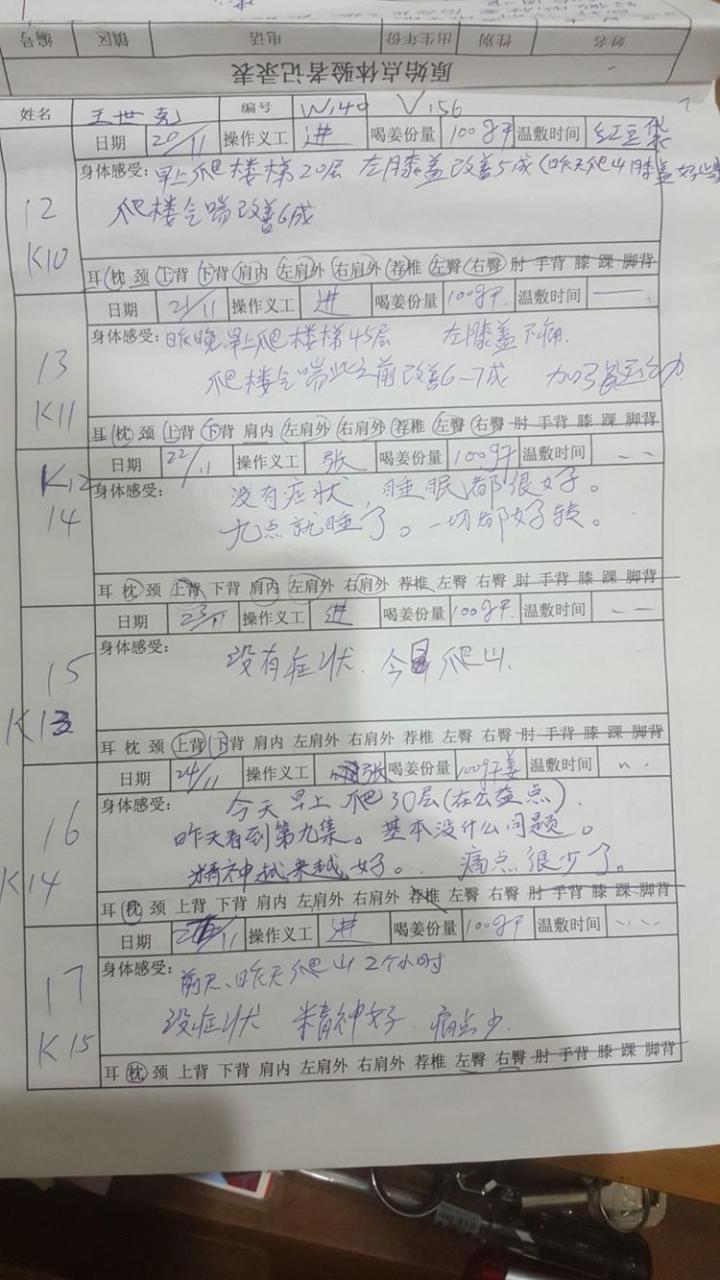 编号 镇区 电话 出生年份 性别 姓名
原始点体验者记录表
姓名 王世克 编号 W140 V156
日期 20/11 操作义工 进 喝姜份量 100g干 温敷时间 红豆袋
12
K10
身体感受: 早上爬楼梯20层 左膝盖改善5成(昨天爬山膝盖好些
爬楼气喘改善6成
耳 枕 颈 上背 下背 肩内 左肩外 右肩外 荐椎 左臀 右臀 肘 手背 膝 踝 脚背
日期 21/11 操作义工 进 喝姜份量 100g干. 温敷时间 —
13
K11
身体感受: 昨晚,早上爬楼梯45层 左膝盖不痛.
爬楼气喘比之前改善6-7成
耳 枕 颈 上背 下背 肩内 左肩外 右肩外 荐椎 左臀 右臀 肘 手背 膝 踝 脚背
日期 22/11 操作义工 张 喝姜份量 100g干 温敷时间 、、
K12
14
身体感受: 没有症状,睡眠都很好。
九点就睡了。一切都好转。
耳 枕 颈 上背 下背 肩内 左肩外 右肩外 荐椎 左臀 右臀 肘 手背 膝 踝 脚背
日期 23/11 操作义工 进 喝姜份量 100g干 温敷时间 — —
15
K13
身体感受: 没有症状. 今 爬山.
耳 枕 颈 上背 下背 肩内 左肩外 右肩外 荐椎 左臀 右臀 肘 手背 膝 踝 脚背
日期 24/11 操作义工 张 喝姜份量 100g干姜 温敷时间 、、
16
K14
身体感受: 今天早上爬30层(在公益点).
昨天看到第九集。基本没什么问题。
精神越来越好。 痛点很少了。
耳 枕 颈 上背 下背 肩内 左肩外 右肩外 荐椎 左臀 右臀 肘 手背 膝 踝 脚背
日期 /11 操作义工 进 喝姜份量 100g干 温敷时间 、、、
17
K15
身体感受: 前天、昨天爬山2个小时
没症状 精神好. 痛点少.
耳 枕 颈 上背 下背 肩内 左肩外 右肩外 荐椎 左臀 右臀 肘 手背 膝 踝 脚背